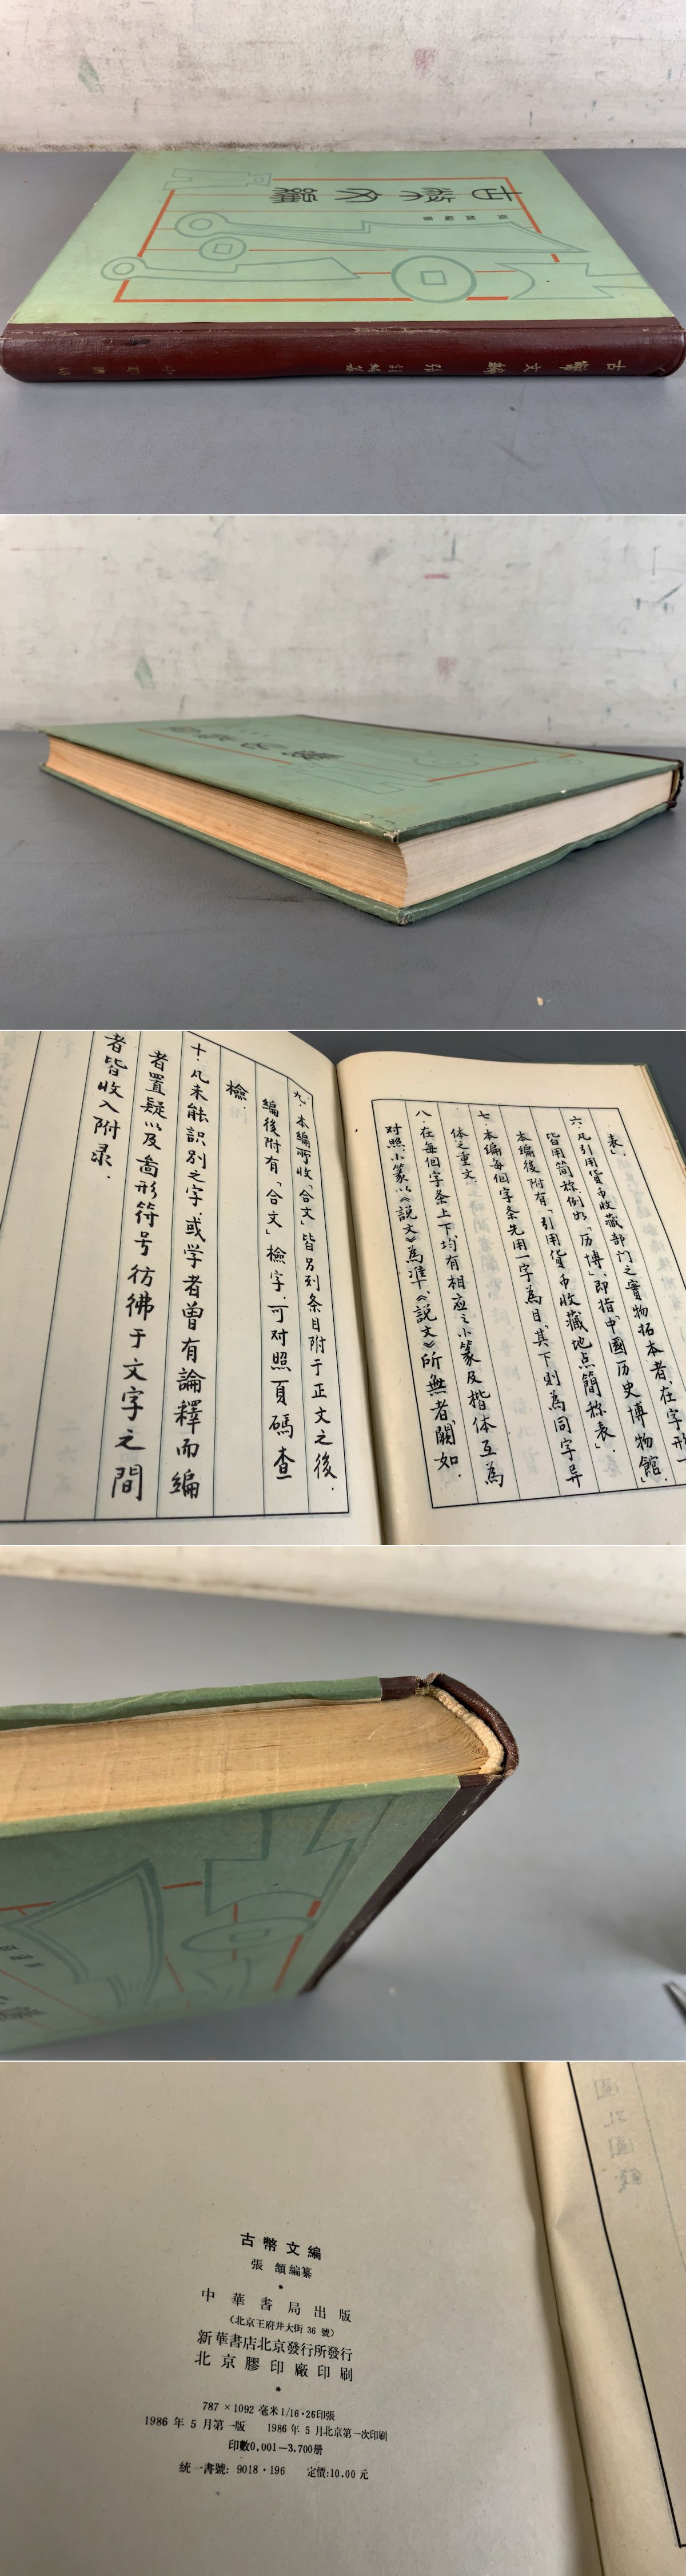 古幣文編
張頷編纂
古幣文編 張頷編纂 中華書局
表」.
六.凡引用貨币收藏部门之實物拓本者,在字形一
皆用简称,例如「历博」,即指「中國历史博物館」.
本編後附有「引用貨币收藏地点簡称表」.
七.本编每個字条先用一字為目,其下則為同字异
体之重文.
八.在每個字条上下,均有相应之小篆及楷体互為
对照.小篆以《説文》為準,《説文》所無者,闕如.
九.本编所收「合文」皆另列条目附于正文之後.
编後附有「合文」檢字,可对照頁碼查
檢.
十.凡未能識别之字,或学者曾有論釋而編
者置疑以及啚形符号彷彿于文字之間
者皆收入附录.
古幣文編
張頷編纂
中華書局出版
(北京王府井大街 36 號)
新華書店北京發行所發行
北京膠印廠印刷
787×1092 毫米 1/16·26印張
1986 年 5 月第一版 1986 年 5 月北京第一次印刷
印數0,001—3,700册
統一書號: 9018·196 定價:10.00 元